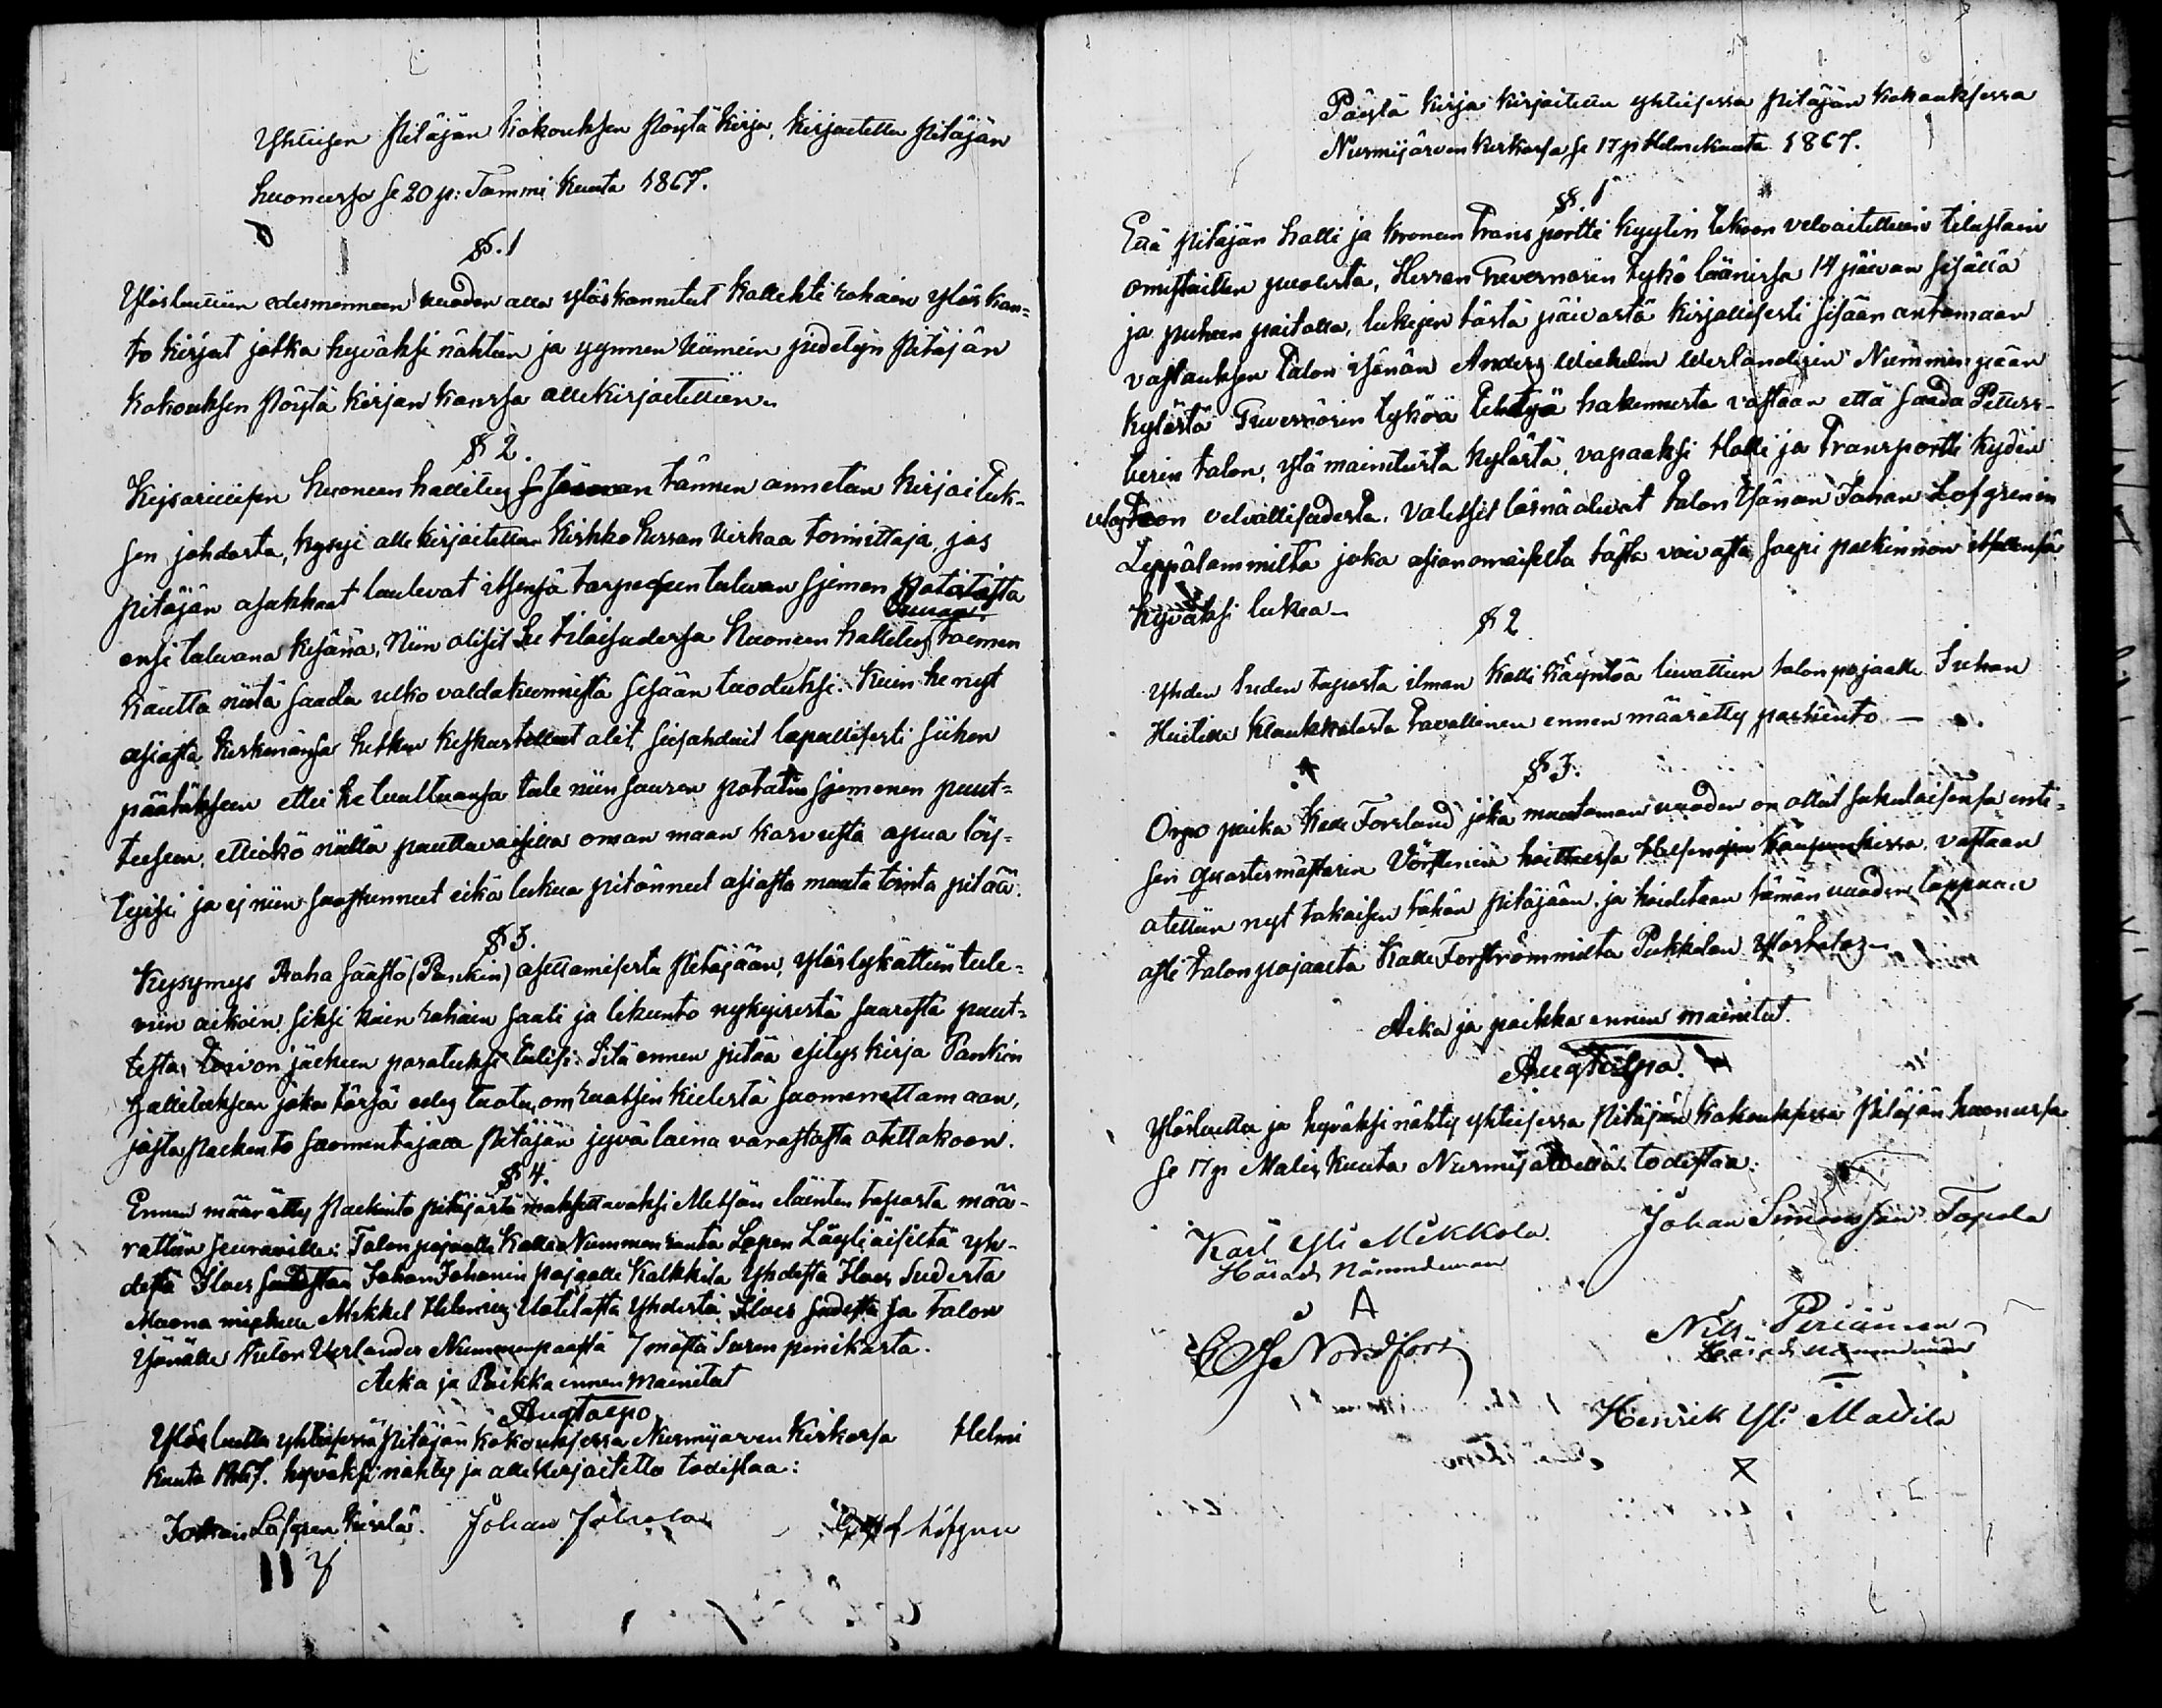 Yhteisen Pitäjän Kokouksen Pöytä Kirja, Kirjoitettu Pitäjän
huoneessa se 20 p: Tammi Kuuta 1867.
§. 1
Ylösluettiin edesmenneen vuoden alla ylöskannetut Kollehti rahain ylöskan-
to kirjat jotka hyväksi nähtiin ja pidetyn Pitäjän
Kokouksen Pöytä kirjan kanssa allekirjoitettiin.
§ 2.
Keisarillisen Huoneen hallitus tännen annetun kirjoituk-
sen johdosta, kysyi allekirjoitettu Kirkko herran virkaa toimittaja, jos
pitäjän asukkaat luulevat itsensä tarpeehen tulevan siemen potatista
ensi tulevana kesänä, Niin olisit he tilaisuudessa Huoneen hallitus toimen
kautta niitä saada ulko valdakunnista sisään tuoduksi. Kuin he nyt
asiasta keskenänsä hetken keskustellut olit, seisahduit lopullisesti siihen
päätökseen ettei he luultuansa tule niin suuren potatin siemenen puut-
teeseen, etteikö niillä puuttuvaisilla oman maan kasvusta apua löy-
tyisi ja ei niin suostunneet eikä lukua pitänneet asiasta muuta tointa pitää.
§ 3.
Kysymys Raha säästö (Pankin) asettamisesta Pitäjään, ylöslykättiin tule-
viin aikoin, siksi kuin rahain saali ja liikunto nykyisestä suuresta puut-
testa, toivon jälkeen paratuksi tulisi. Sitä ennen pitää esitys kirja Pankin
hallitukseen joka tässä edes tuotu on, ruotsin kielestä suomennettamaan,
josta palkinto suomentajalle Pitäjän jyvä laina varastosta otettakoon.
§ 4.
Ennen määrätty Palkinto pitäjästä maksettavaksi Metsän eläinten taposta mää-
rättiin seuraaville: Talonpojalle Kalle Nummenranta Lopen Läyliäisiltä yh-
destä Ilves Johan Johanin pojalle Kalkkila yhdestä Ilves Sudesta
Muona miehelle Mikkel Helenius Uotilasta yhdestä Ilves sudesta ja talon
Isänälle Verlander Nummenpäästä 7 mästä Suden penikasta.
Aika ja Paikka ennen mainitut
Aug Taipo
Ylös luettu yhteisessä Pitäjän kokouksessa Nurmijärven Kirkossa Helmi
Kuuta 1867. hyväksi nähty ja alle kirjoitettu todistaa:
Johan Löfgren Johan Jölsola Löfgren
Pöytä Kirja Kirjoitettu yhteisessä Pitäjän Kokouksessa
Nurmijärven Kirkossa se 17 p Helmikuuta 1867.
§. 1
Että Pitäjän halli ja kronun Transportti kyytin tekoon velvoitettuin tilustain
omistaitten puolesta, Herran Guvernörin tykö läänissä 14 päivän sisällä
ja puheen paitalla, lukejen tästä päivästä kirjallisesti sisään antamaan
vastauksen Talon isänän Anders Wilhelm Werlanderin Nummenpään
kylästä Guvernörin tyköä tehtyä hakemusta vastaan että saada Petters-
berin talon, ylä mainitusta kylästä, vapaaksi Halli ja Transportti kydin
ulosteon velvollisudesta. Valitsit läsnä olevat talon Isänän Johan Löfgrenin
Leppälammilta joka asianomaisilta tästä vaivasta saapi palkinnon itsellensä
hyväksi lukea.
§ 2
Yhden Suden taposta ilman Halli käyntöä luvattiin talonpojalle Juhan
Heitille Klaukkalasta tavallinen ennen määrätty palkinto —
§ 3.
Orpo poika Kalle Forslund joka muutaman vuoden on ollut sukulaisensa enti-
sen quartermästarin Vörstenin hoittessa Helsingin kaupunkissa. vastaan
otettiin nyt takaisin tähän pitäjään, ja hoidetaan tämän vuoden loppuun
asti talonpojalta Kalle Forströmmiltä Pukkilan
Aika ja paikka ennen mainitut.
Aug Taipo.
Ylösluettu ja hyväksi nähty yhteisessä Pitäjän kokouksessa Pitäjän huoneessa
se 17 p Malis kuuta Nurmijärvellä todistaa:
Karl Yli Mikkola
Härads Nämndeman
Johan Simonsson Tapola
E J Nordfors
Nils
Härads nämndeman
Henrik Yli Mattila